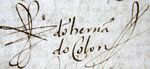 do hernā
do Colon